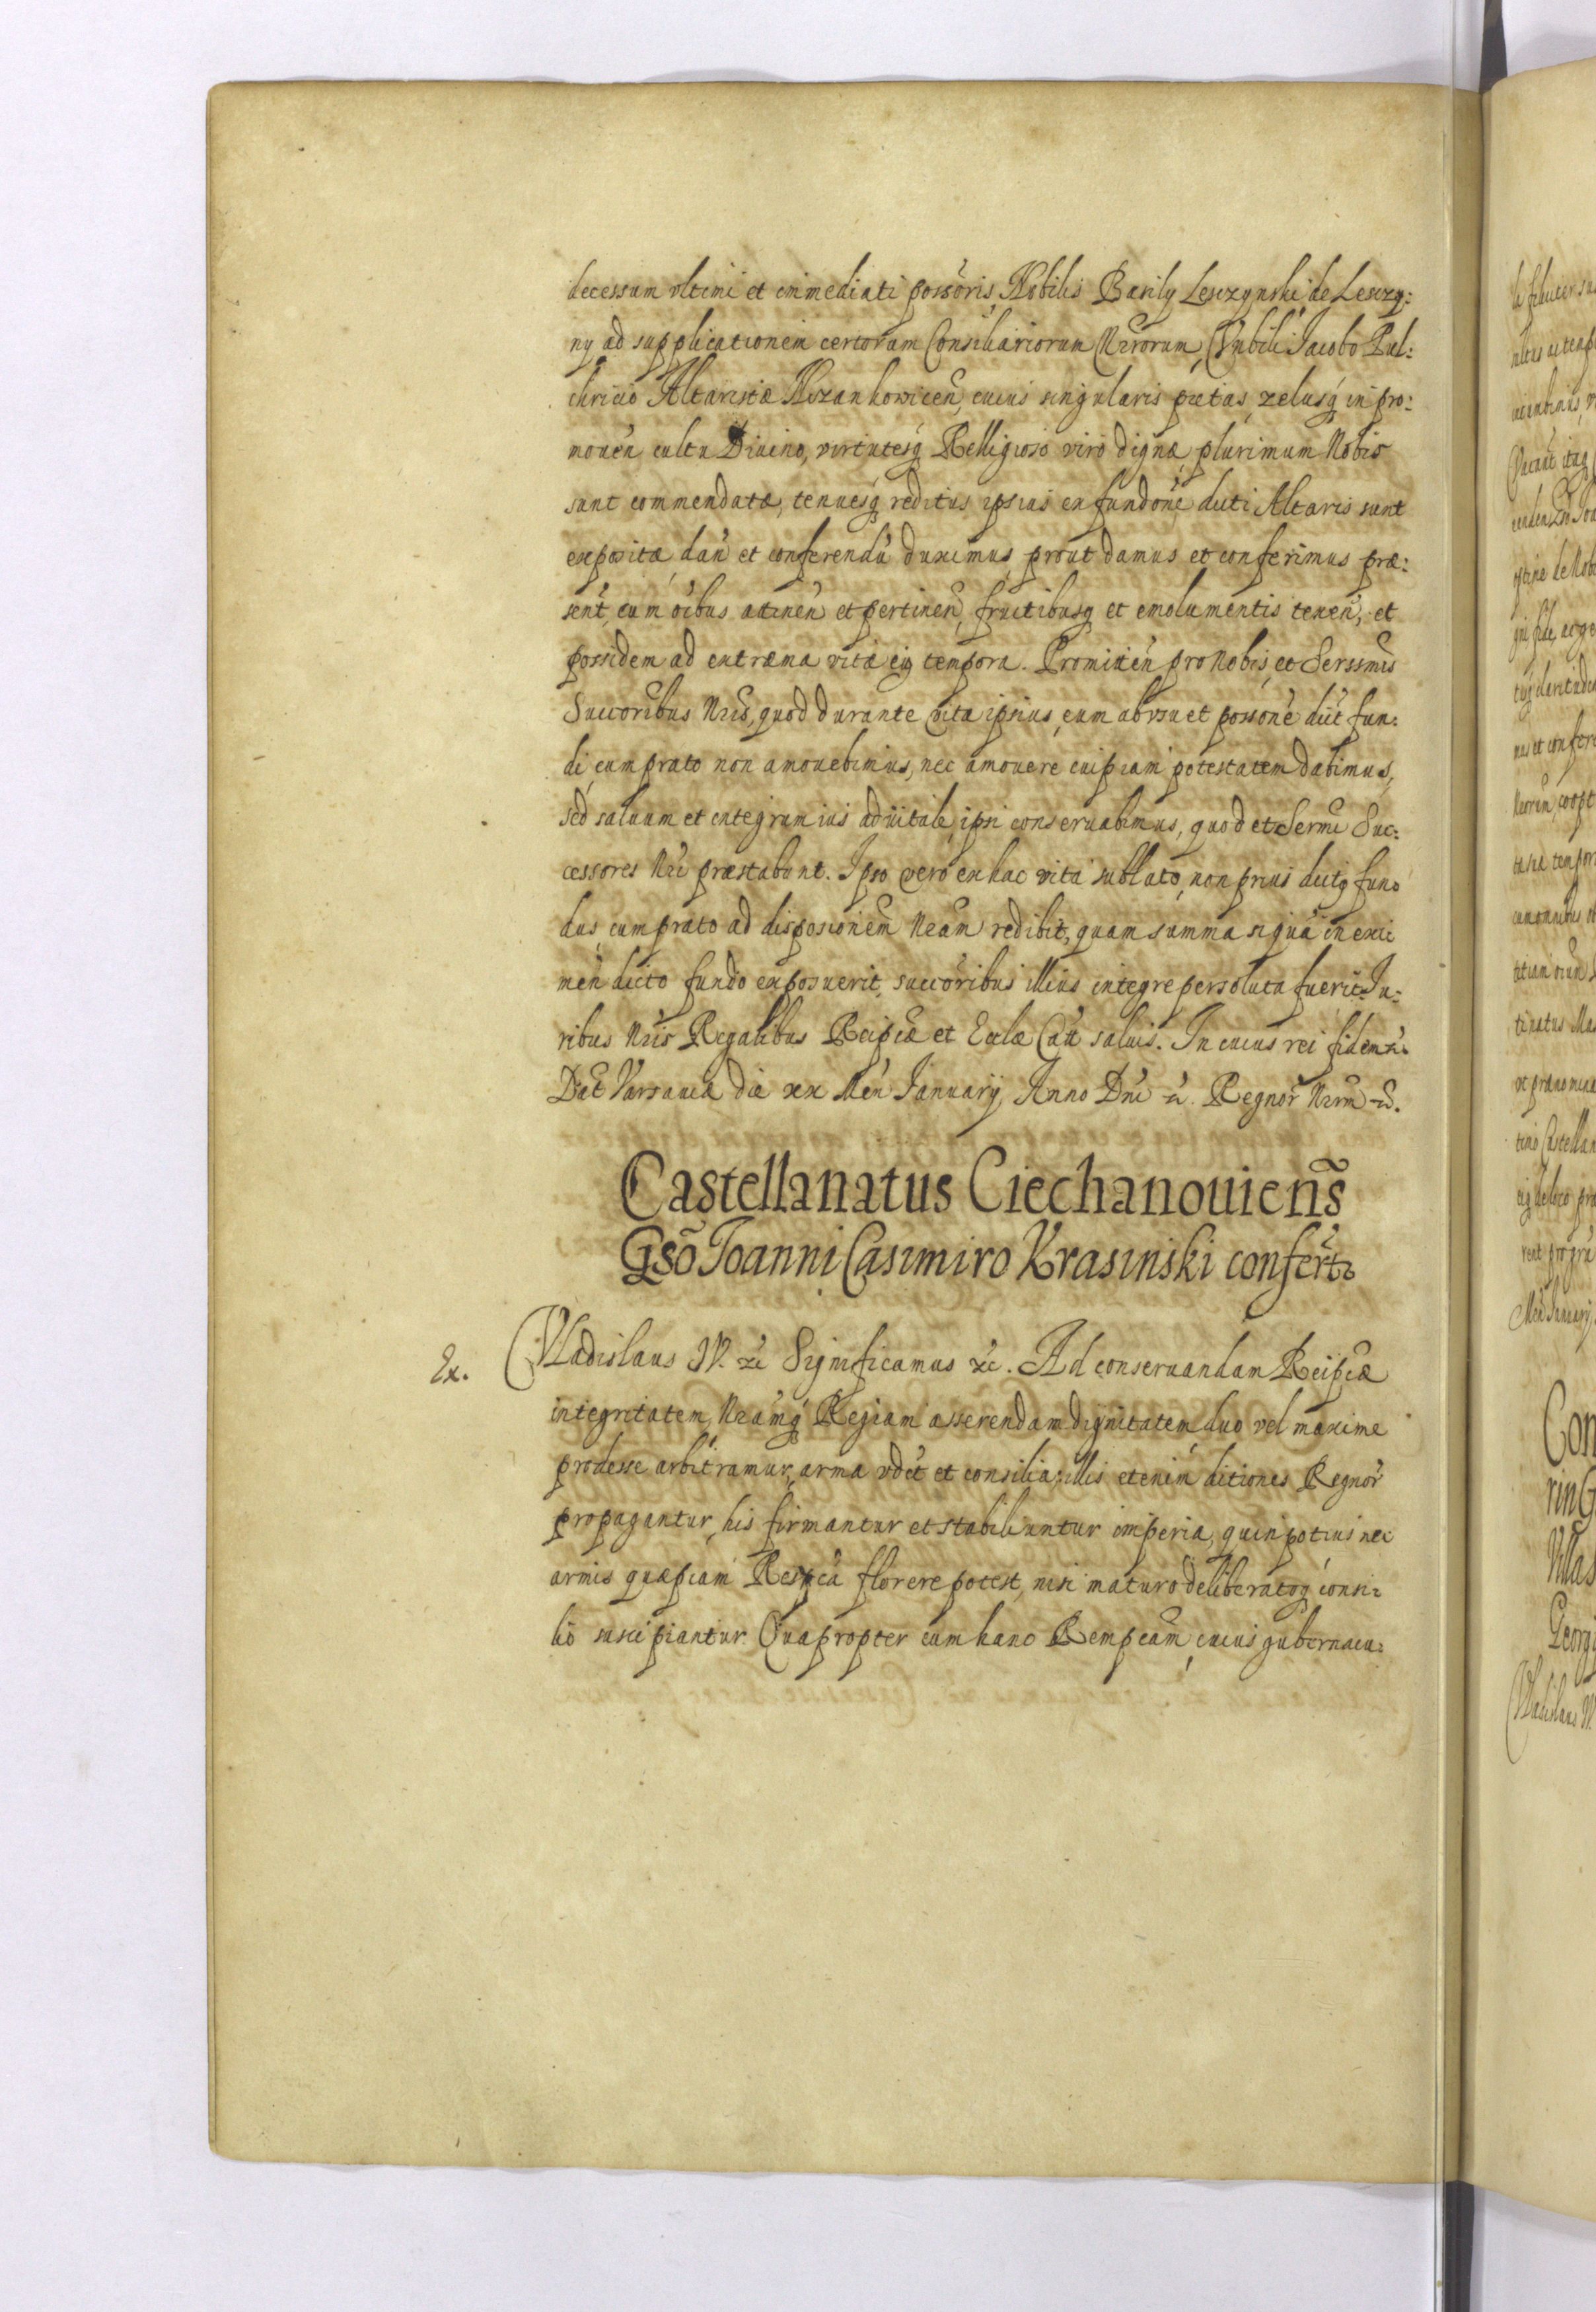 decessum vltimi et immediati possoris, Nobilis Basilij Lesczynski de Lesczy:
ny ad supplicationem certorum Consiliariorum Nrorum, Vnbili Iacobo Pul:
chricio Altaristæ cuius singularis pietas, zelusq in pro:
mouen cultu Diuino, virtutesq Relligioso viro dignæ, plurimum Nobis
sunt commendatæ, tenuesq reditus ipsius ex fundone dicti Altaris sunt
expositæ, dan et conferendu duximus, prout damus et conferimus præ:
sent, cum oibus attinen et pertinen, fructibusq et emolumentis tenen, et
possiden ad extræma vitæ eius tempora. Promitten pro Nobis, et Serssmis
Succoribus Nris, quod durante vita ipsius, eum ab vsu et possone dict fun:
di, cum prato non amouebimus, nec amouere cuipiam potestatem dabimus,
sed saluum et integrum ius aduitale, ipsi conseruabimus, quod et Sermi Suc:
cessores Nri præstabunt. Ipso vero ex hac vita sublato, non prius dictq fun:
dus, cum prato ad disposionem Nram redibit, quam summa siqua in exi:
men dicto fundo exposuerit, succoribus illius integre persoluta fuerit. Iu:
ribus Nris Regalibus Reipcæ et Ecclæ Catt saluis. In cuius rei fidem &.
Dat Varsauiæ die xx Men Ianuarij, Anno Dni &. Regnor Nrm &.
Castellanatus Ciechanouiens
Gso Ioanni Casimiro Krasinski confert
Ex. Vladislaus IV. &c Significamus &c. Ad conseruandam Reipcæ
integritatem, Nramq Regiam asserendam dignitatem duo vel maxime
prodesse arbitramur, arma vdct et consilia: illis etenim ditiones Regnor
propagantur, his firmantur et stabiliuntur imperia, quin potius nec
armis quæpiam Respca florere potest, nisi maturo deliberatoq consi:
lio suscipiantur. Quapropter cum hanc Rempcam, cuius gubernacu: